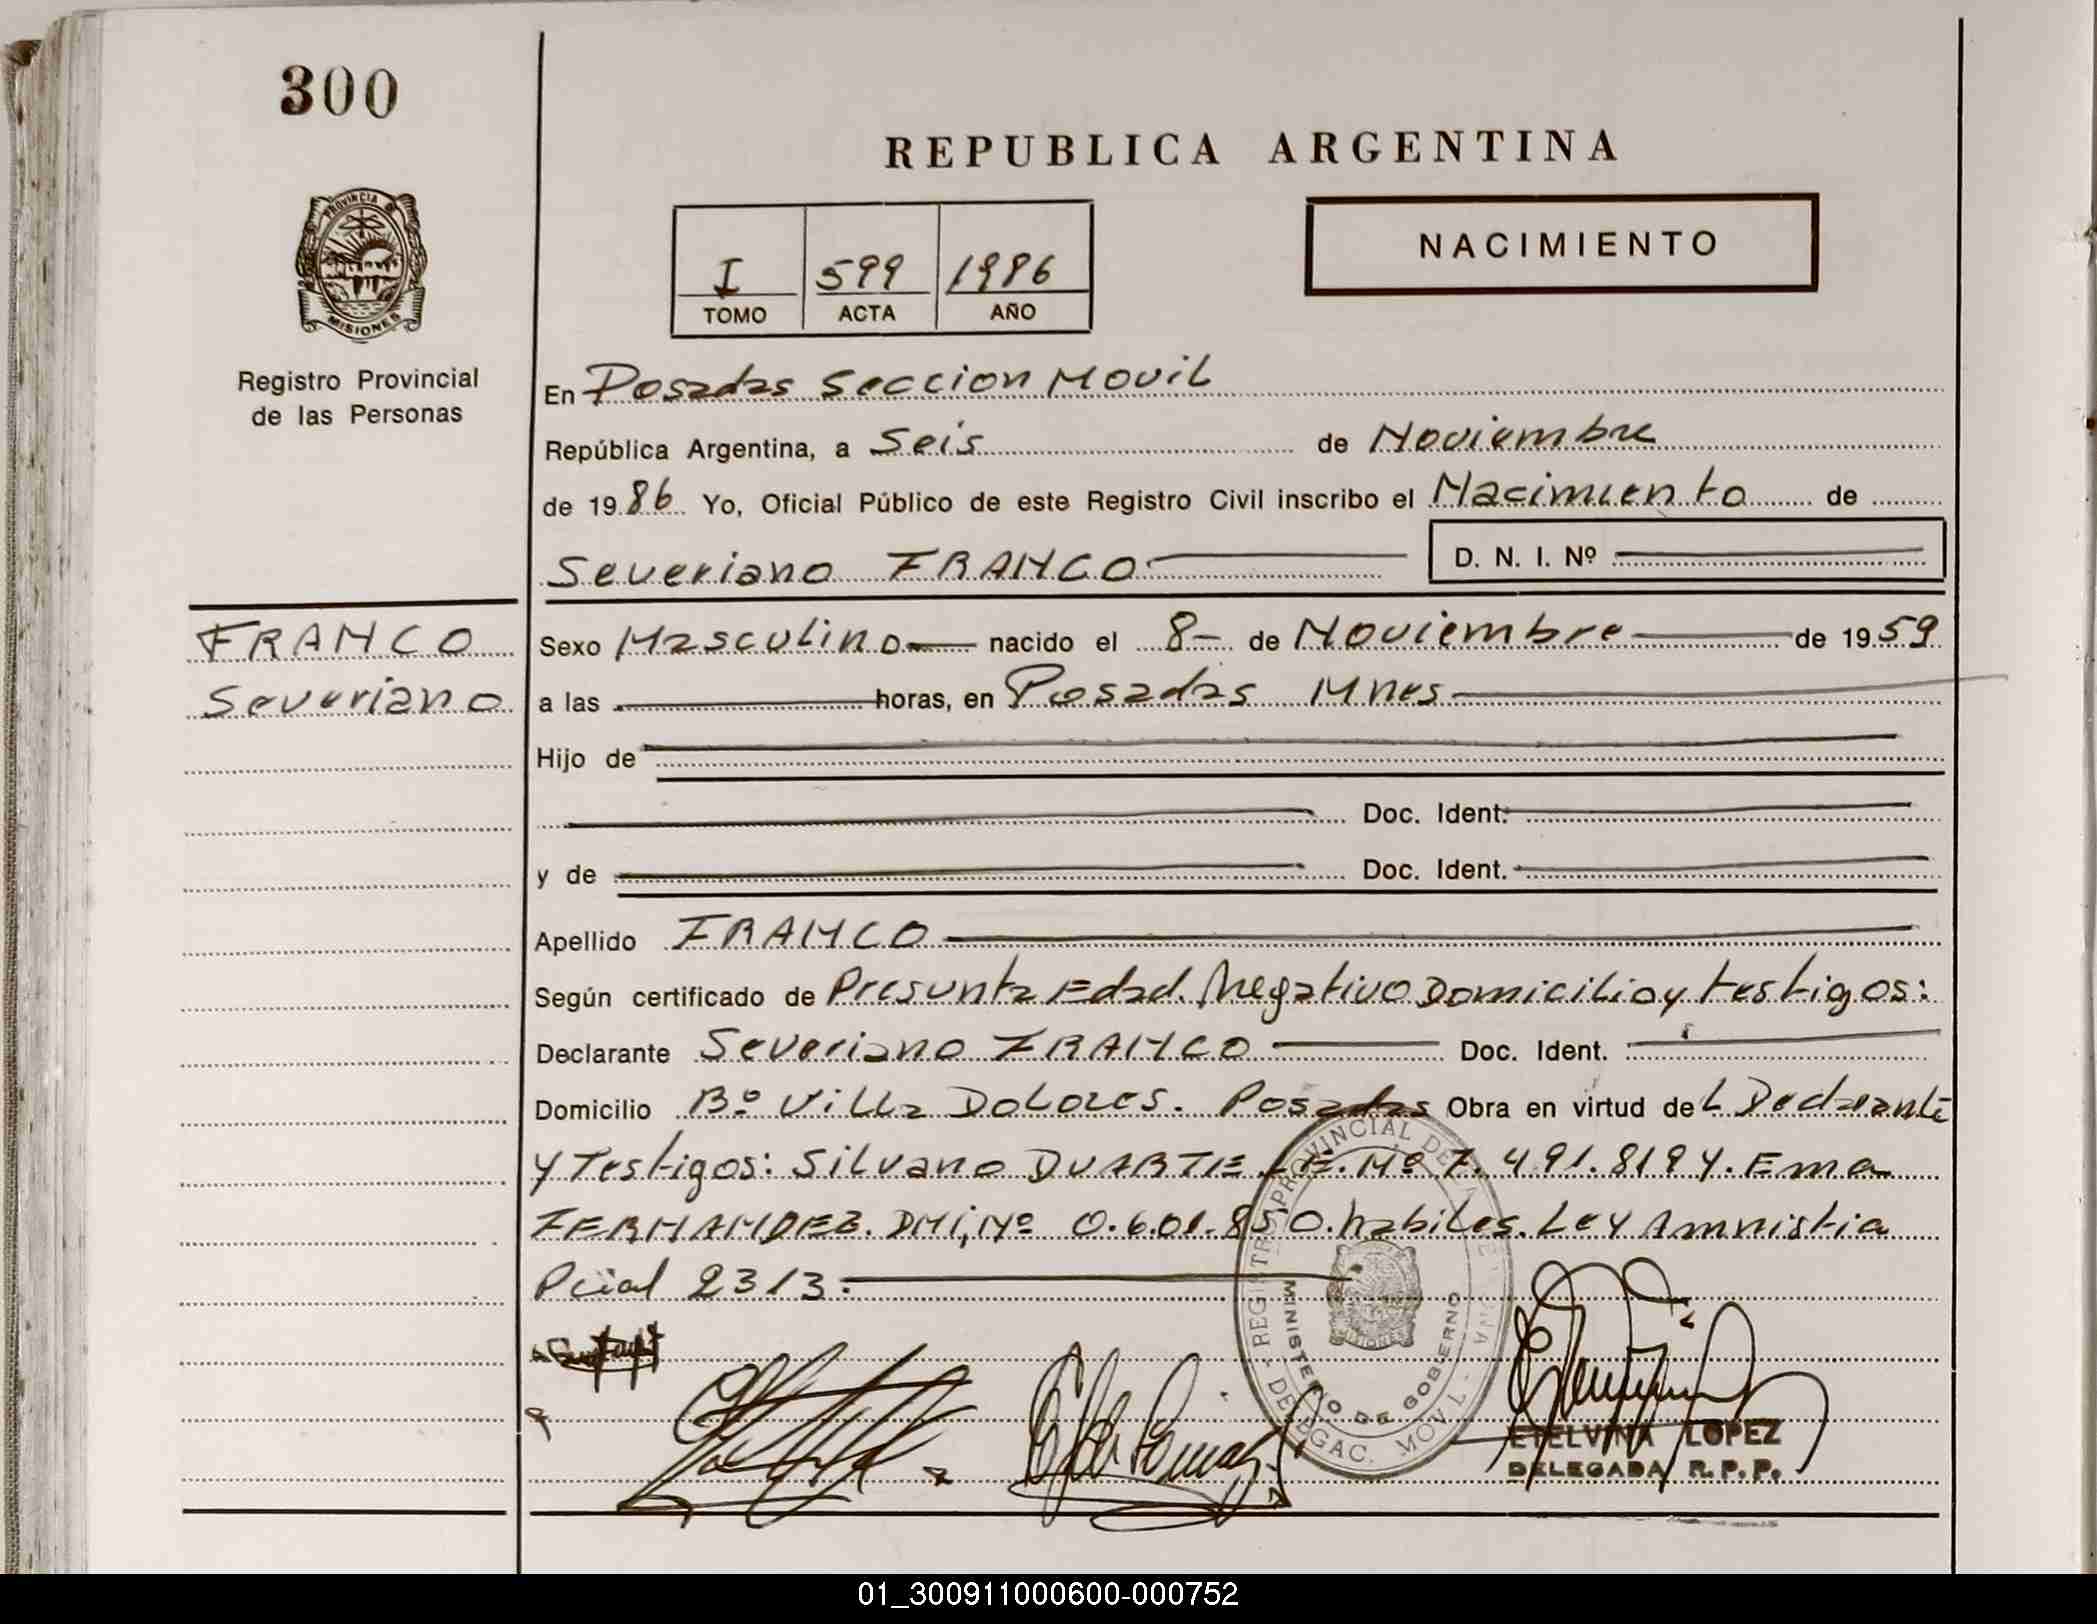 300
REPUBLICA ARGENTINA
PROVINCIA DE
MISIONES
I 599 1986
TOMO ACTA AÑO
NACIMIENTO
Registro Provincial
de las Personas
En Posadas Seccion Movil
República Argentina, a Seis de Noviembre
de 1986 Yo, Oficial Público de este Registro Civil inscribo el Nacimiento de
Severiano FRANCO D. N. I. Nº
FRANCO
Severiano
Sexo Masculino nacido el 8 de Noviembre de 1959
a las horas, en Posadas Mnes
Hijo de
Doc. Ident.
y de Doc. Ident.
Apellido FRANCO
Según certificado de Presunta Edad. Negativo Domicilio y testigos:
Declarante Severiano FRANCO Doc. Ident.
Domicilio Bº Villa Dolores. Posadas Obra en virtud del Declarante
y Testigos: Silvano DUARTE L.E. Nº 7.491.819 y. Ema
FERNANDEZ. DNI, Nº 0.6.01.850. habiles. Ley Amnistia
Pcial 2313.
REGISTRO PROVINCIAL DE LAS PERSONAS
MINISTERIO DE GOBIERNO
DELEGAC. MOVIL
MISIONES
ETELVINA LOPEZ
DELEGADA R.P.P.
01_300911000600-000752